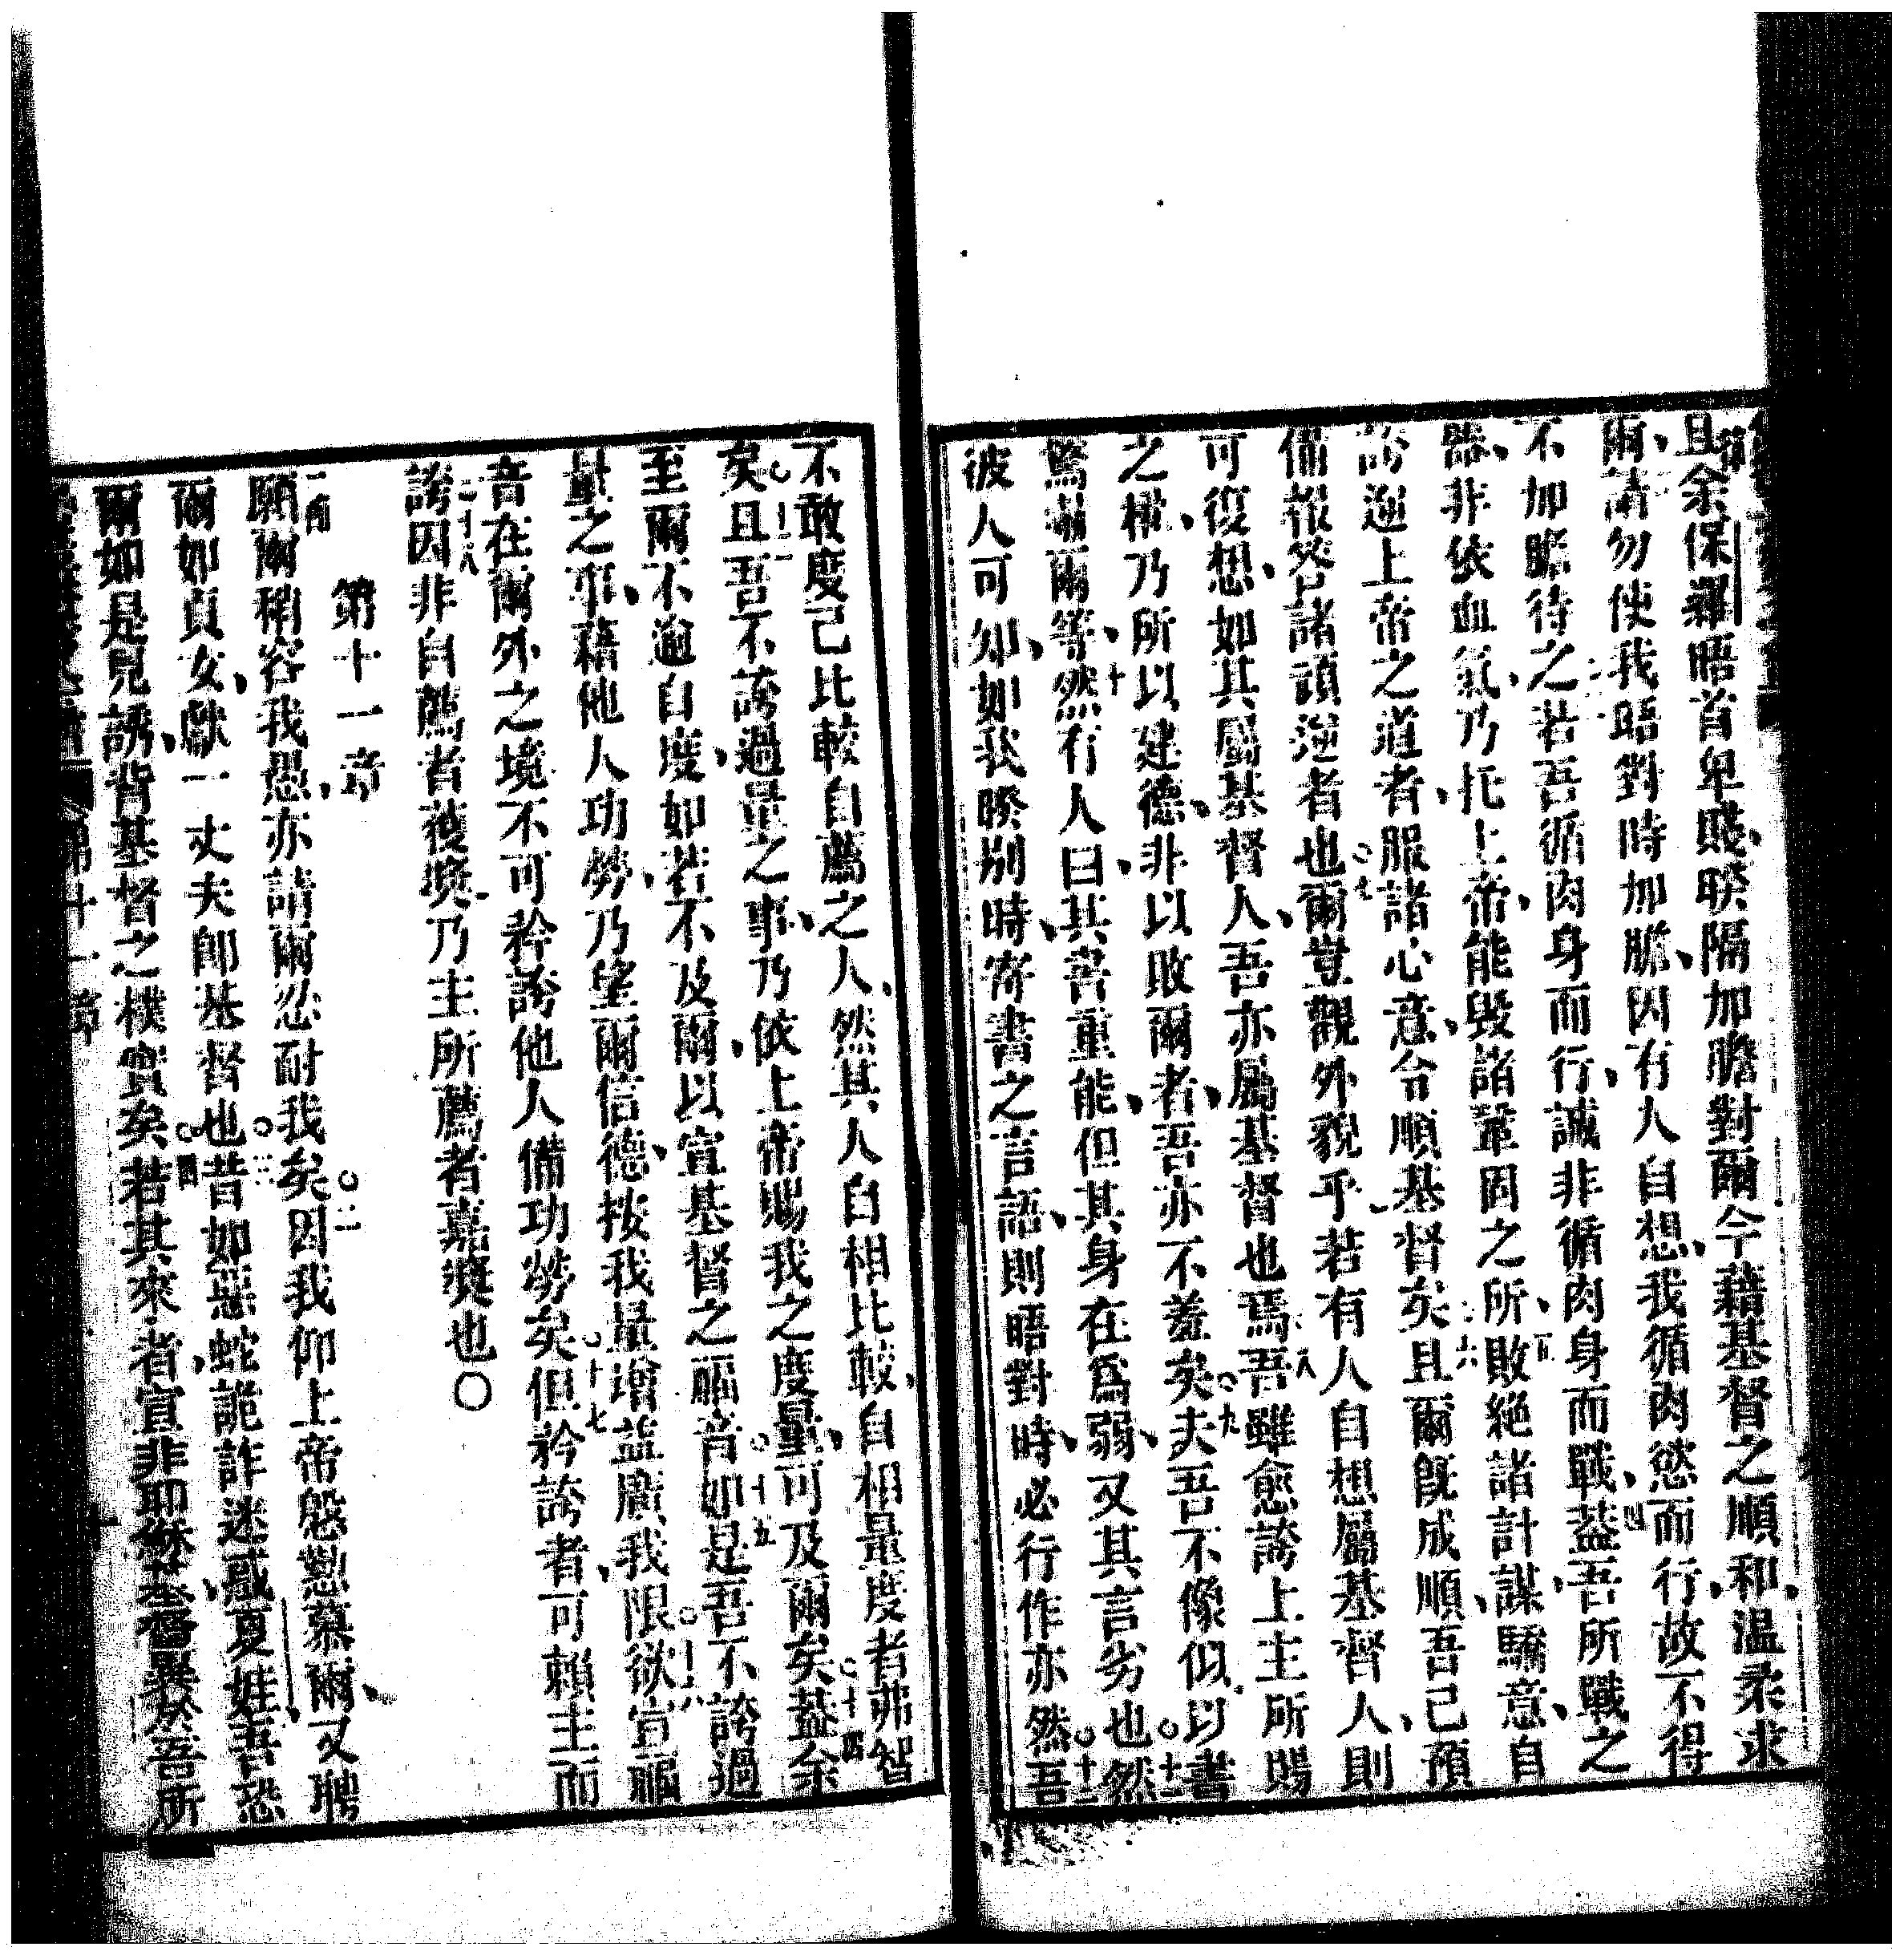 且余保羅晤首卑賤、暌隔加膽對爾今藉基督之順和、温柔求
爾、請勿使我晤對時加膽、因有人自想、我循肉慾而行、故不得
不加膽待之若吾循肉身而行、誠非循肉身而戰、四蓋吾所戰之
器、非依血氣、乃托上帝、能毀諸鞏固之所、五敗絕諸計謀、驕意、自
誇逆上帝之道者、服諸心意、令順基督矣○六且爾旣成順、吾己預
備報答諸頑逆者也○七爾豈觀外貌乎、若有人自想屬基督人、則
可復想、如其屬基督人、吾亦屬基督也焉○八吾雖愈誇上主所賜
之權、乃所以建德、非以敗爾者、吾亦不羞矣○九夫吾不像似以書
驚嚇爾等、十然有人曰、其書重能、但其身在爲弱、又其言劣也○十一然
彼人可知、如我暌别時、寄書之言語、則晤對時、必行作亦然○十二吾
不敢度己比較自薦之人、然其人自相比較、自相量度者非智
矣○十三且吾不誇過量之事、乃依上帝賜我之度量、可及爾矣○十四蓋余
至爾不逾自度、如若不及爾、以宣基督之福音如是○十五吾不誇過
量之事、藉他人功勞、乃望爾信德、按我量增益廣、我限○十六欲宣福
音在爾外之境不可矜誇他人備功勞矣○十七但矜誇者、可賴主而
誇○十八因非自薦者獲獎、乃主所薦者嘉獎也○
第十一章
一願爾稍容我愚、亦請爾忍耐我矣○二因我仰上帝慇懃慕爾、又聘
爾如貞女、獻一丈夫卽基督也○三昔如惡蛇詭詐迷惑夏娃、吾恐
爾如是見誘、背基督之樸實矣○四若其來者、宣非耶穌基督異於吾所
第十一章